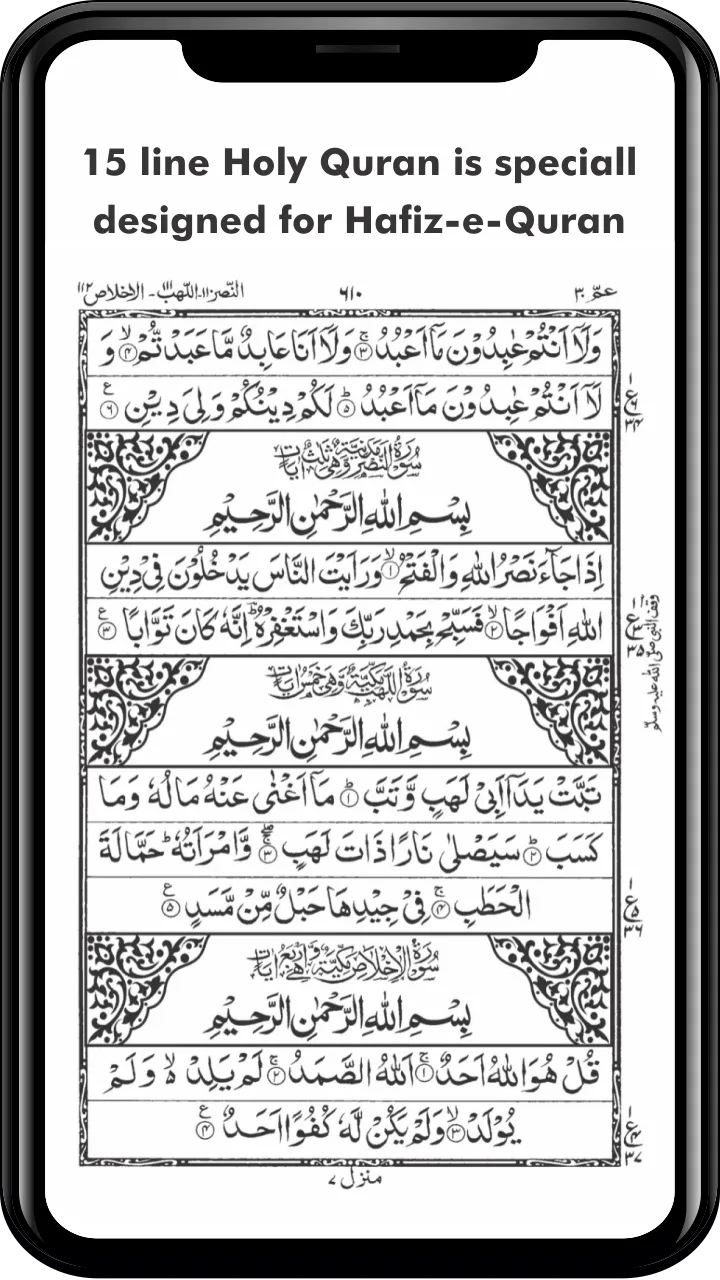 15 line Holy Quran is speciall
designed for Hafiz-e-Quran
عمّ ٣٠ ٦١٠ النّصر ١١٠ - اللّهب ١١١ - الاخلاص ١١٢
وَلَآ اَنْتُمْ عٰبِدُوْنَ مَآ اَعْبُدُ ۚ﴿٣﴾ وَلَآ اَنَا عَابِدٌ مَّا عَبَدْتُّمْ ۙ﴿٤﴾ وَ
لَآ اَنْتُمْ عٰبِدُوْنَ مَآ اَعْبُدُ ؕ﴿٥﴾ لَكُمْ دِيْنُكُمْ وَلِيَ دِيْنِ ﴿٦﴾ ع
١ ع ٦ ٣٤
سُوْرَةُ النَّصْرِ مَدَنِيَّةٌ وَّهِيَ ثَلٰثُ اٰيَاتٍ
بِسْمِ اللهِ الرَّحْمٰنِ الرَّحِيْمِ
اِذَا جَآءَ نَصْرُ اللهِ وَالْفَتْحُ ۙ﴿١﴾ وَرَاَيْتَ النَّاسَ يَدْخُلُوْنَ فِيْ دِيْنِ
اللهِ اَفْوَاجًا ۙ﴿٢﴾ فَسَبِّحْ بِحَمْدِ رَبِّكَ وَاسْتَغْفِرْهُ ؕ اِنَّهٗ كَانَ تَوَّابًا ﴿٣﴾ ع
١ ع ٣ ٣٥
وقف النبي صلى الله عليه وسلم
سُوْرَةُ اللَّهَبِ مَكِّيَّةٌ وَّهِيَ خَمْسُ اٰيَاتٍ
بِسْمِ اللهِ الرَّحْمٰنِ الرَّحِيْمِ
تَبَّتْ يَدَآ اَبِيْ لَهَبٍ وَّتَبَّ ؕ﴿١﴾ مَآ اَغْنٰى عَنْهُ مَالُهٗ وَمَا
كَسَبَ ؕ﴿٢﴾ سَيَصْلٰى نَارًا ذَاتَ لَهَبٍ ۖۚ﴿٣﴾ وَّامْرَاَتُهٗ ؕ حَمَّالَةَ
الْحَطَبِ ۚ﴿٤﴾ فِيْ جِيْدِهَا حَبْلٌ مِّنْ مَّسَدٍ ﴿٥﴾ ع
١ ع ٥ ٣٦
سُوْرَةُ الْاِخْلَاصِ مَكِّيَّةٌ وَّهِيَ اَرْبَعُ اٰيَاتٍ
بِسْمِ اللهِ الرَّحْمٰنِ الرَّحِيْمِ
قُلْ هُوَ اللهُ اَحَدٌ ۚ﴿١﴾ اَللهُ الصَّمَدُ ۚ﴿٢﴾ لَمْ يَلِدْ ۙ۬ وَلَمْ
يُوْلَدْ ۙ﴿٣﴾ وَلَمْ يَكُنْ لَّهٗ كُفُوًا اَحَدٌ ﴿٤﴾ ع
١ ع ٤ ٣٧
منزل ٧